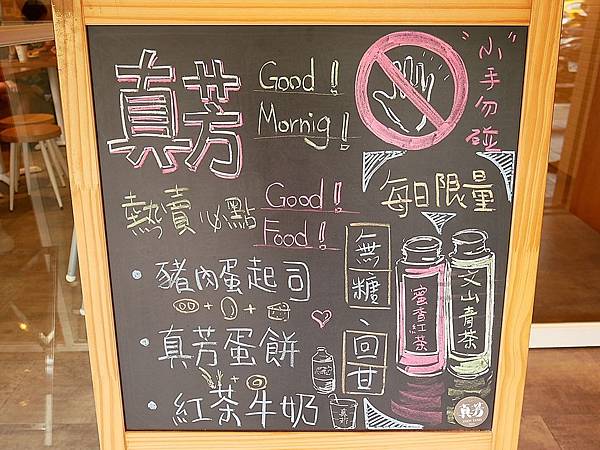 真芳
Good!
Mornig!
"小"手勿碰
熱賣必點
Good!
Food!
每日限量
豬肉蛋起司
真芳蛋餅
紅茶牛奶
無糖、回甘
蜜香紅茶
文山青茶
真芳